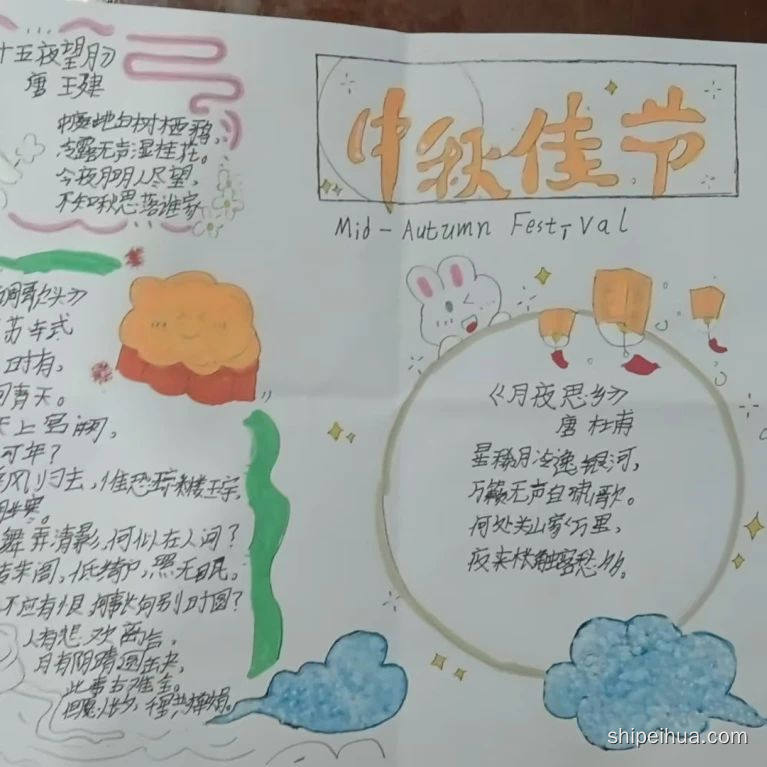 十五夜望月》
唐 王建
中庭地白树栖鸦，
冷露无声湿桂花。
今夜月明人尽望，
不知秋思落谁家
中秋佳节
Mid-Autumn Festival
调歌头》
苏轼
时有，
青天。
天上宫阙，
何年？
风归去，惟恐琼楼玉宇，
胜寒。
舞弄清影，何似在人间？
转朱阁，低绮户，照无眠。
不应有恨，何事长向别时圆？
人有悲欢离合，
月有阴晴圆缺，
此事古难全。
但愿人长久，千里共婵娟。
《月夜思乡》
唐 杜甫
星稀月冷逸银河，
万籁无声自啸歌。
何处关山家万里，
夜来枨触客愁多。
shipeihua.com